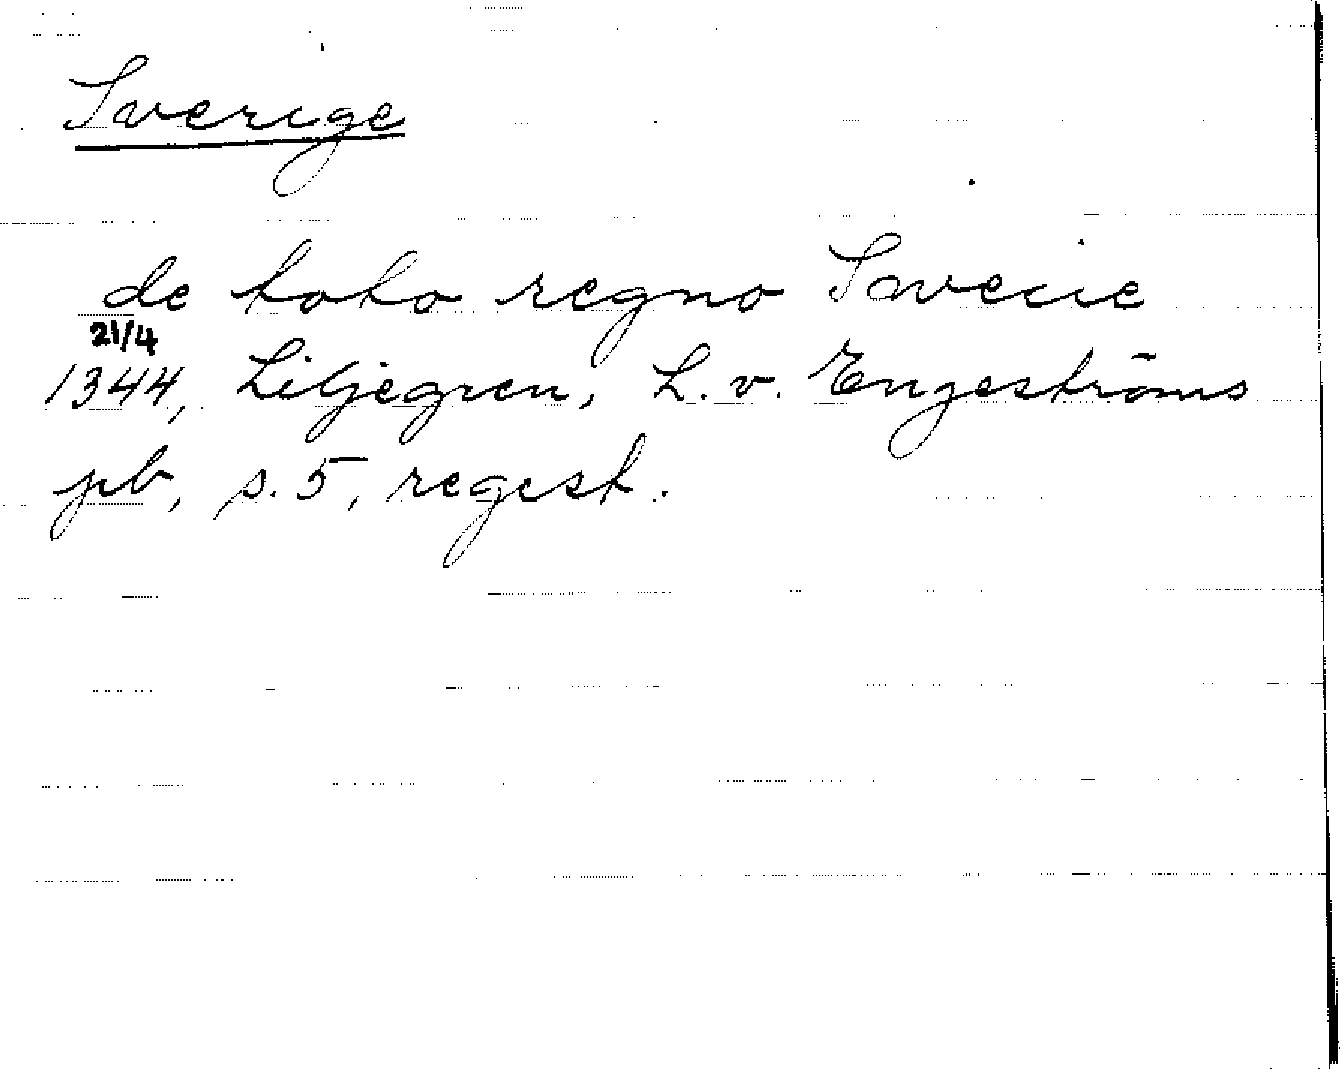 Sverige
de toto regno Swecie
21/4
1344, Liljegren, L. v. Engeströms
pb, s. 5, regest.